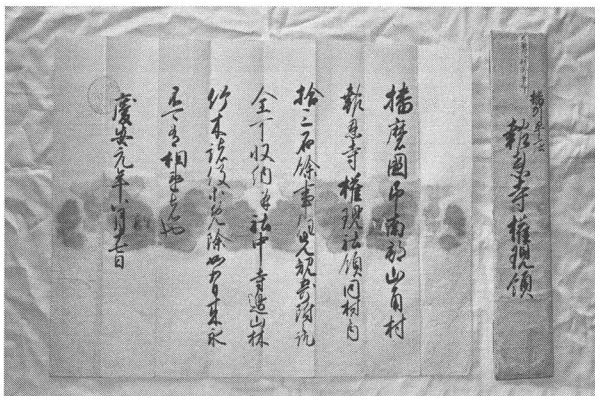 播州
報恩寺權現領
播磨國印南郡山角村
報恩寺權現社領同村内
拾二石餘事任先規寄附訖
全可収納并社中寺邊山林
竹木諸役等免除如有来永
不可有相違者也
慶安元年八月七日